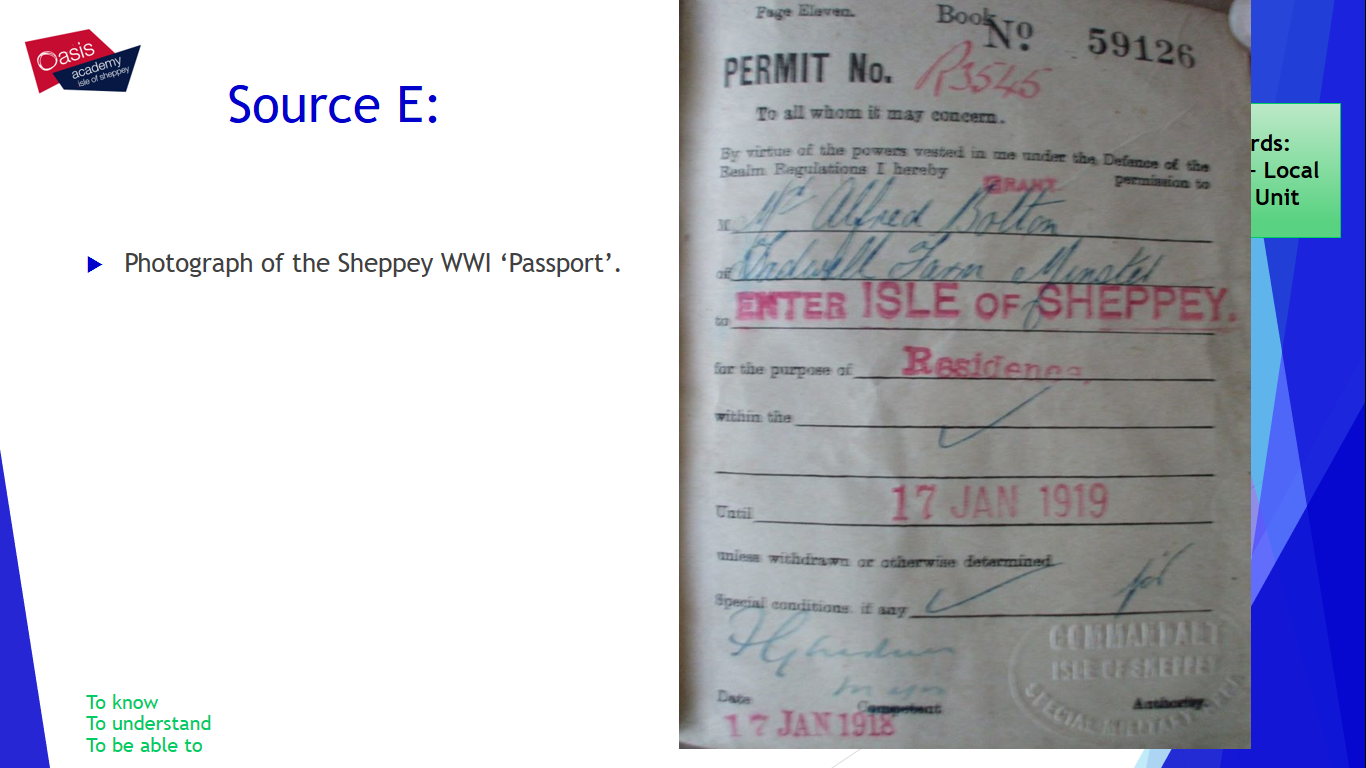 Oasis
academy
isle of sheppey
Source E:
Photograph of the Sheppey WWI ‘Passport’.
To know
To understand
To be able to
Page Eleven.
Book
No 59126
PERMIT No. R3545
To all whom it may concern.
By virtue of the powers vested in me under the Defence of the
Realm Regulations I hereby GRANT permission to
M Mr Alfred Bolton
of Farm Minster
to ENTER ISLE OF SHEPPEY.
for the purpose of Residence.
within the
Until 17 JAN 1919
unless withdrawn or otherwise determined
Special conditions, if any
Date Competent Authority.
17 JAN 1918
COMMANDANT
ISLE OF SHEPPEY
SPECIAL MILITARY AREA
rds:
- Local
Unit